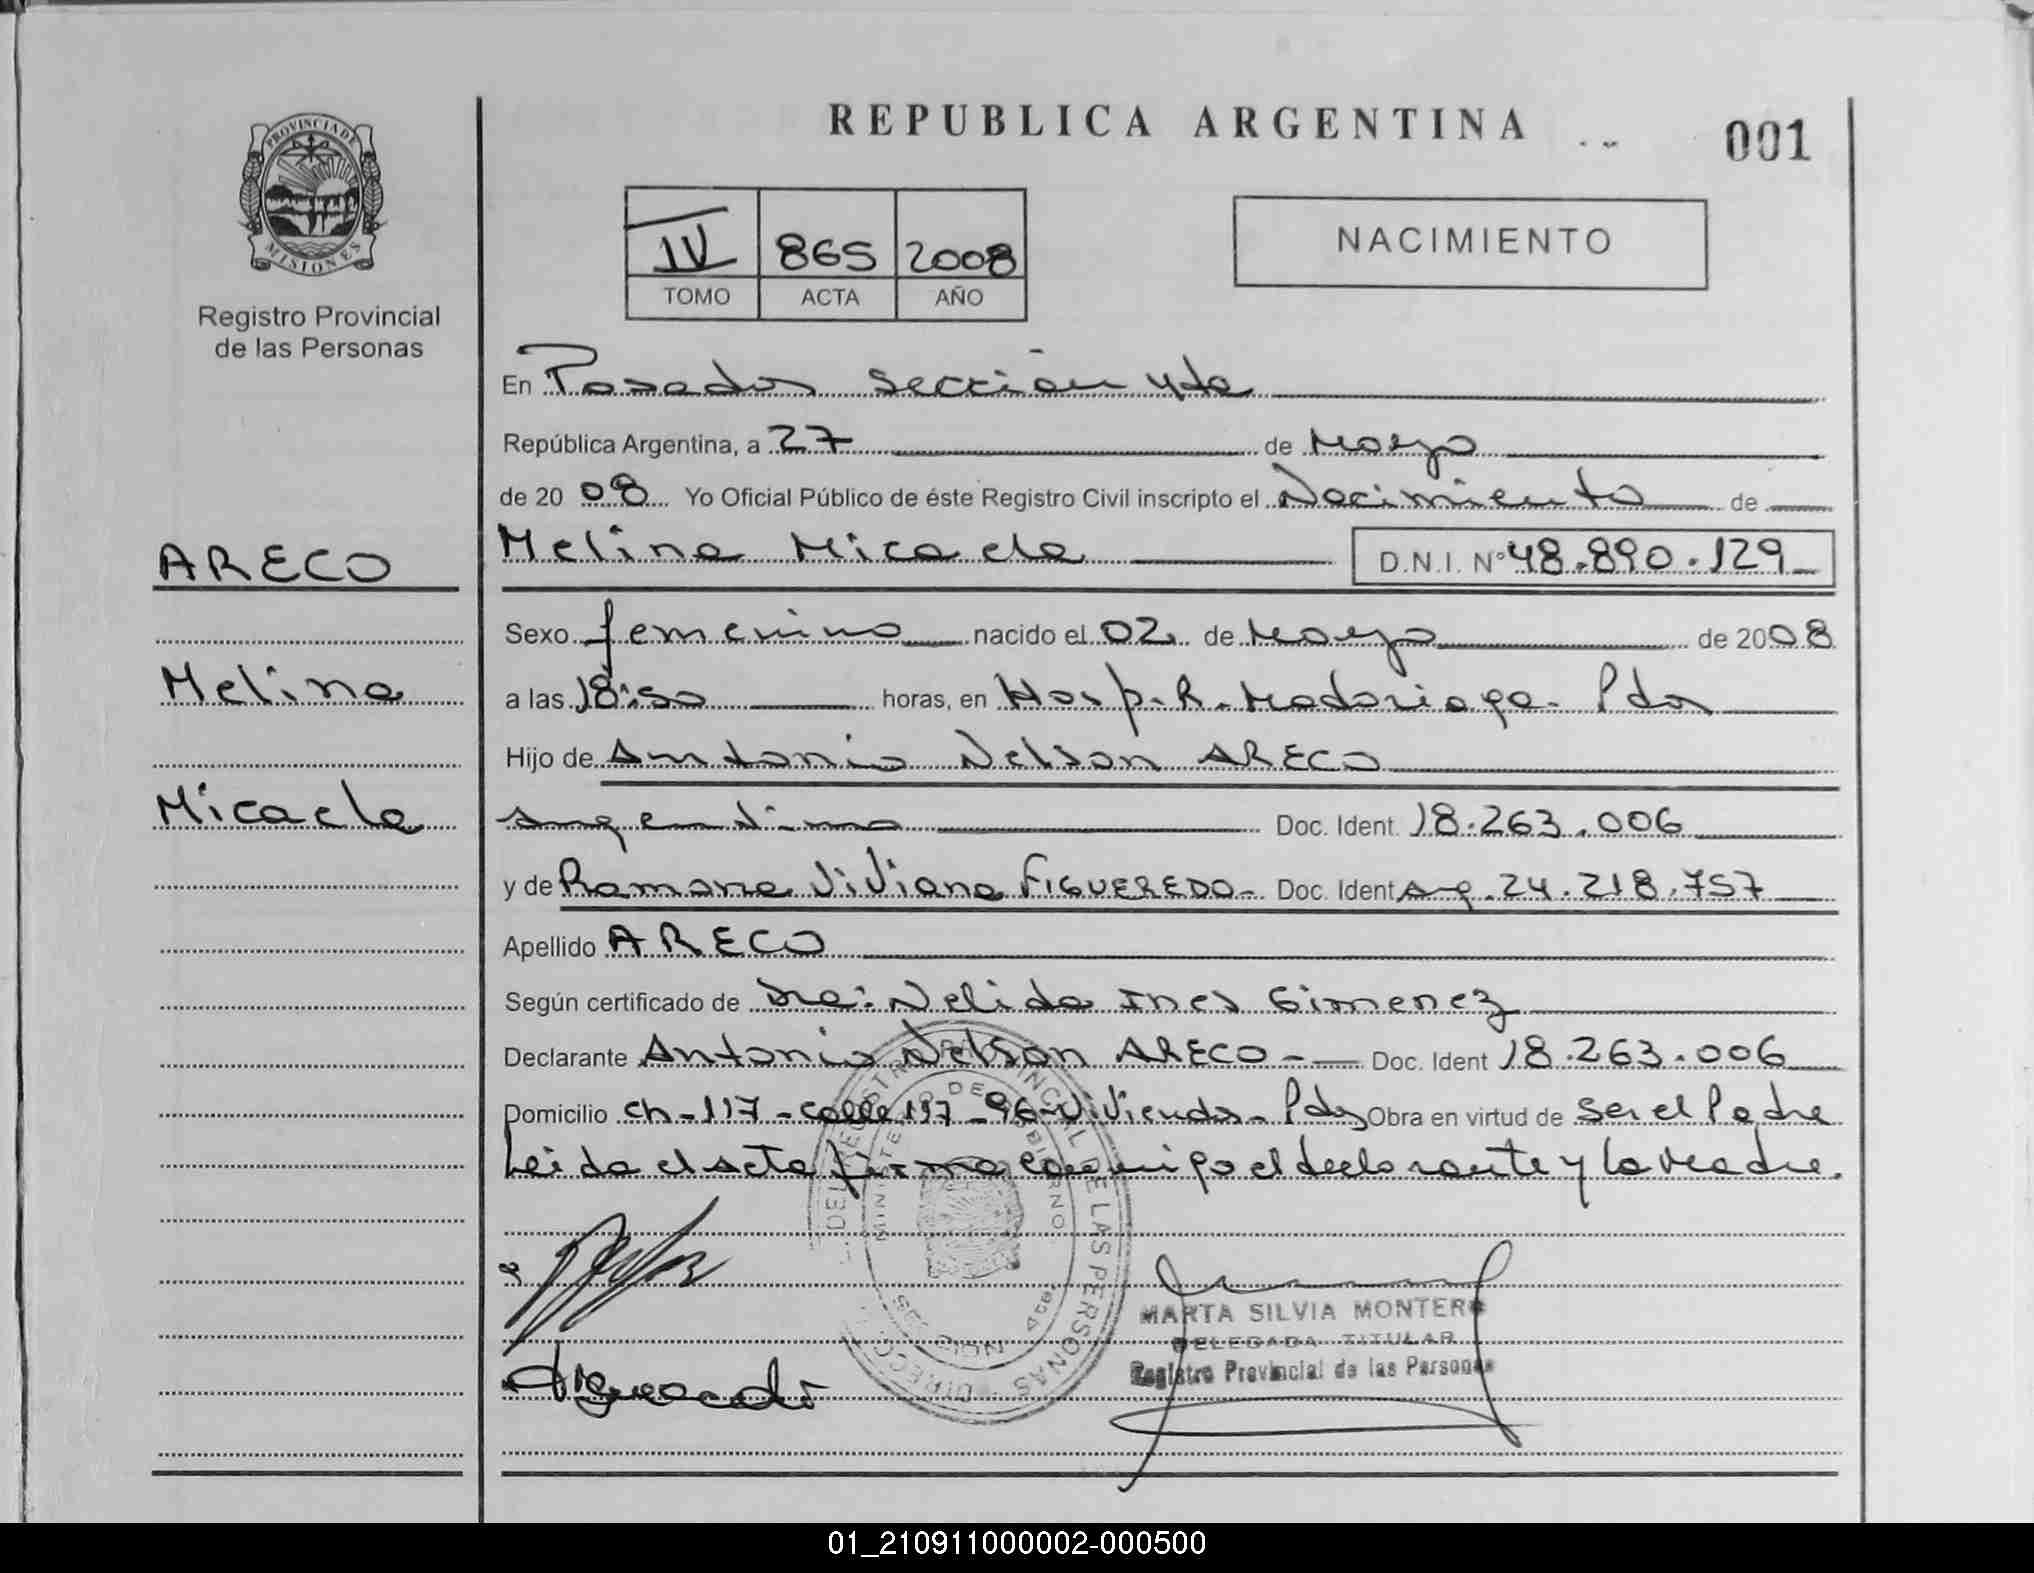 REPUBLICA ARGENTINA
001
PROVINCIA DE
MISIONES
Registro Provincial
de las Personas
IV 865 2008
TOMO ACTA AÑO
NACIMIENTO
En Posadas sección 4ta
República Argentina, a 27 de Mayo
de 2008 Yo Oficial Público de éste Registro Civil inscripto el Nacimiento de
Melina Micaela D.N.I. Nº 48.890.129
ARECO
Melina
Micaela
Sexo femenino nacido el 02 de Mayo de 2008
a las 18:50 horas, en Hosp. R. Madariaga - Pdas
Hijo de Antonio Nelson ARECO
argentino Doc. Ident. 18.263.006
y de Ramona Viviana FIGUEREDO - Doc. Ident Arg. 24.218.757
Apellido ARECO
Según certificado de Dra: Nelida Ines Gimenez
Declarante Antonio Nelson ARECO - Doc. Ident 18.263.006
Domicilio Ch-117-calle 197-96-Vivienda-Pdas Obra en virtud de ser el Padre
Leida el acta firma conmigo el declarante y la Madre.
MARTA SILVIA MONTERO
DELEGADA TITULAR
Registro Provincial de las Personas
01_210911000002-000500